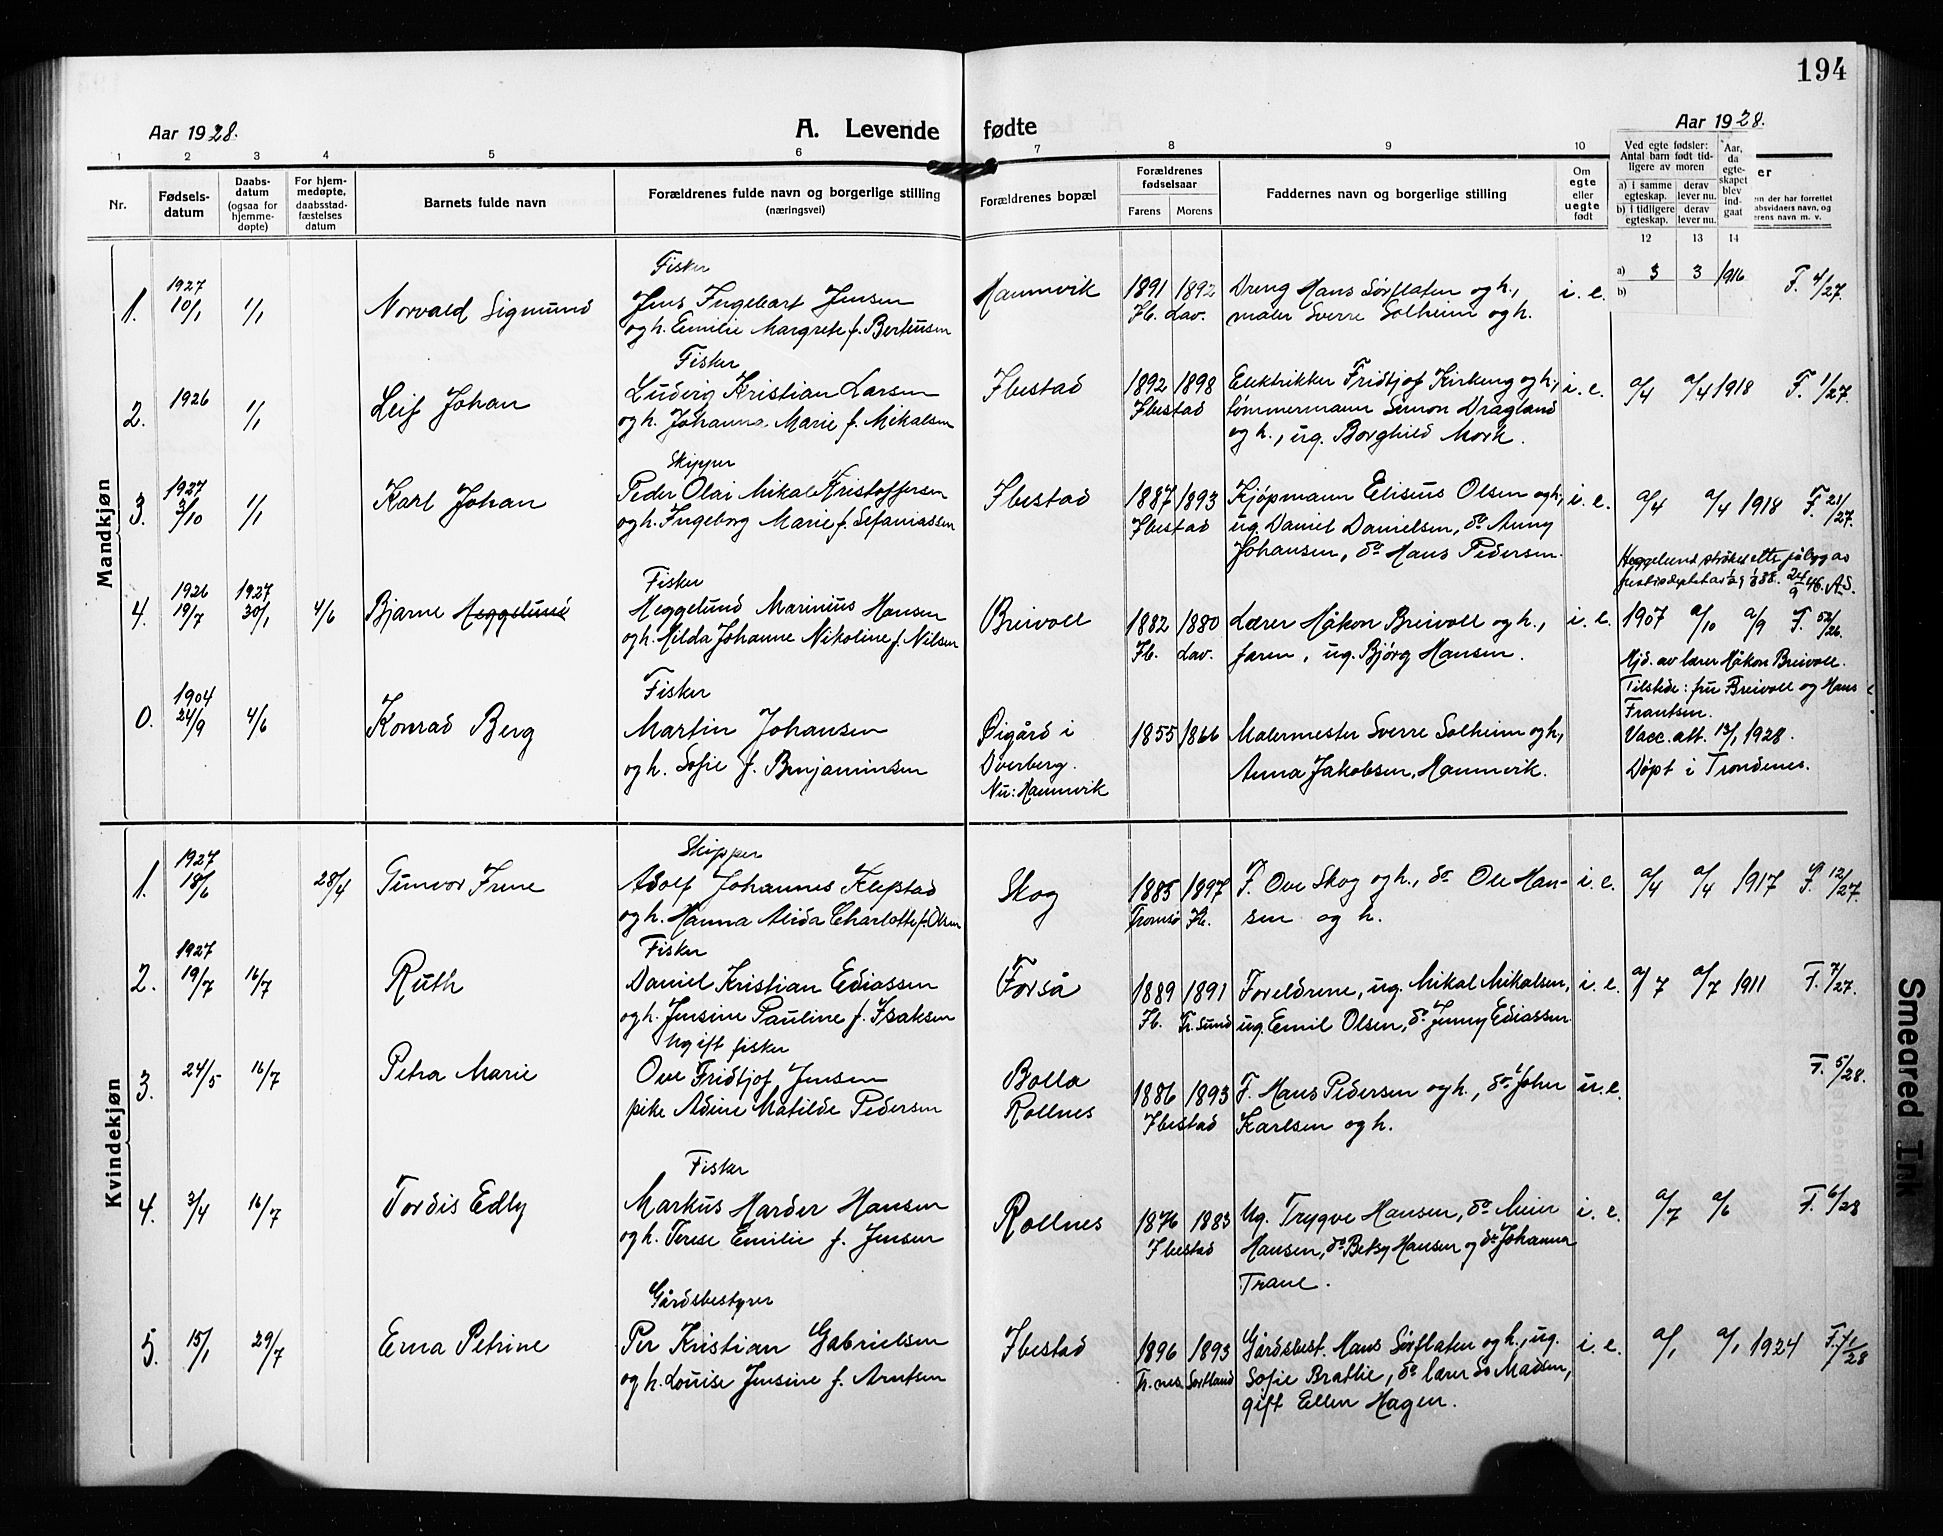 194
Aar 1928.
A. Levende fødte
Aar 1928.
1 2 3 4 5 6 7 8 9 10
Nr.
Fødsels-
datum
Daabs-
datum
(ogsaa for
hjemme-
døpte)
For hjem-
medøpte,
daabsstad-
fæstelses
datum
Barnets fulde navn
Forældrenes fulde navn og borgerlige stilling
(næringsvei)
Forældrenes bopæl
Forældrenes
fødselsaar
Farens Morens
Faddernes navn og borgerlige stilling
Om
egte
eller
uegte
født
Ved egte fødsler:
Antal barn født tid-
ligere av moren
a) i samme
egteskap.
b) i tidligere
egteskap.
derav
lever nu.
derav
lever nu.
Aar,
da
egte-
skapet
blev
ind-
gaat
12 13 14
er
en der har forrettet
absvidners navn, og
erens navn m. v.
Mandkjøn
1. 1927 10/1 1/1 Norvald Sigmund
Fisker
Jens Ingebart Jensen
og h. Emilie Margrete f. Berteusen
Hamnvik 1891 1892
Ib. Lav.
Dreng Hans Sørflaten og h.,
maler Sverre Solheim og h.
i. e. a) 3 3 1916 F. 4/27.
b)
2. 1926 1/1 Leif Johan
Fisker
Ludvig Kristian Larsen
og h. Johanna Marie f. Mikalsen
Ibestad 1892 1898
Ibestad
Elektriker Fridtjof Kirkeng og h.,
tømmermann Simon Dragland
og h., ug. Borghild Mork.
i. e. a/4 a/4 1918 F. 1/27.
3. 1927 3/10 1/1 Karl Johan
Skipper
Peder Olai Mikal Kristoffersen
og h. Ingeborg Marie f. Sefaniassen
Ibestad 1887 1893
Ibestad
Kjøpmann Elisius Olsen og h.,
ug. Daniel Danielsen, do Anny
Johansen, do Hans Pedersen.
i. e. a/4 a/4 1918 F. 21/27.
Heggelund strøket etter
24/9 46. A.S.
4. 1926 19/7 1927 30/1 4/6 Bjarne Heggelund
Fisker
Heggelund Marinius Hansen
og h. Hilda Johanne Nikoline f. Nilsen
Breivoll 1882 1880
Ib. Lav.
Lærer Håkon Breivoll og h.,
faren, ug. Bjørg Hansen.
i. e. 1907 a/10 a/9 F. 52/26.
Hjd. av lærer Håkon Breivoll.
Tilstede: fru Breivoll og Hans
Frantsen.
0. 1904 24/9 4/6 Konrad Berg
Fisker
Martin Johansen
og h. Sofie f. Benjaminsen
Øigård i
Dverberg.
Nu: Hamnvik
1855 1866
Malermester Sverre Solheim og h.,
Anna Jakobsen, Hamnvik.
Vacc. att. 13/1 1928.
Døpt i Trondenes.
Kvindekjøn
1. 1927 18/6 28/4 Gunvor Irene
Skipper
Adolf Johannes Klepstad
og h. Hanna Alida Charlotte f. Olsen
Skog 1885 1897
Tromsø Ib.
F. Ove Skog og h., do Ole Han-
sen og h.
i. e. a/4 a/4 1917 F. 12/27.
2. 1927 19/7 16/7 Ruth
Fisker
Daniel Kristian Ediassen
og h. Jensine Pauline f. Isaksen
Forså 1889 1891
Ib. Tr.sund
Foreldrene, ug. Mikal Mikalsen,
ug. Emil Olsen, do Jenny Ediassen.
i. e. a/7 a/7 1911 F. 7/27.
3. 24/5 16/7 Petra Marie
Ugift fisker
Ove Fridtjof Jensen
pike Adine Matilde Pedersen
Bolla
Rollnes
1886 1893
Ibestad
F. Hans Pedersen og h., do John
Karlsen og h.
u. e. F. 5/28.
4. 3/4 16/7 Tordis Edly
Fisker
Markus Harder Hansen
og h. Terese Emilie f. Jensen
Rollnes 1876 1883
Ibestad
Ug. Trygve Hansen, do Meier
Hansen, do Betsy Hansen og do Johanna
Trane.
i. e. a/7 a/6 F. 6/28
5. 15/1 29/7 Erna Petrine
Gårdsbestyrer
Per Kristian Gabrielsen
og h. Louise Jensine f. Arntsen
Ibestad 1896 1893
Tr.nes Sortland
Gårdsbest. Hans Sørflaten og h., ug.
Sofie Bratlie, do lærer So Madsen,
gift Ellen Hagen.
i. e. a/1 a/1 1924 F. 41/28
Smeared Ink